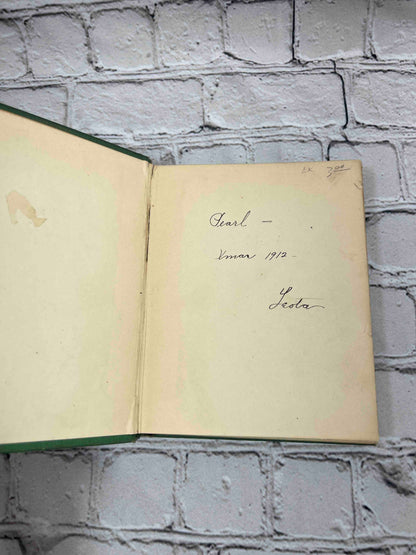 EX. 3.00
Pearl —
Xmas 1912 -
Leota